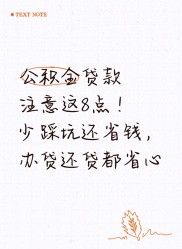 TEXT NOTE
公积金贷款
注意这8点！
少踩坑还省钱，
办贷还贷都省心